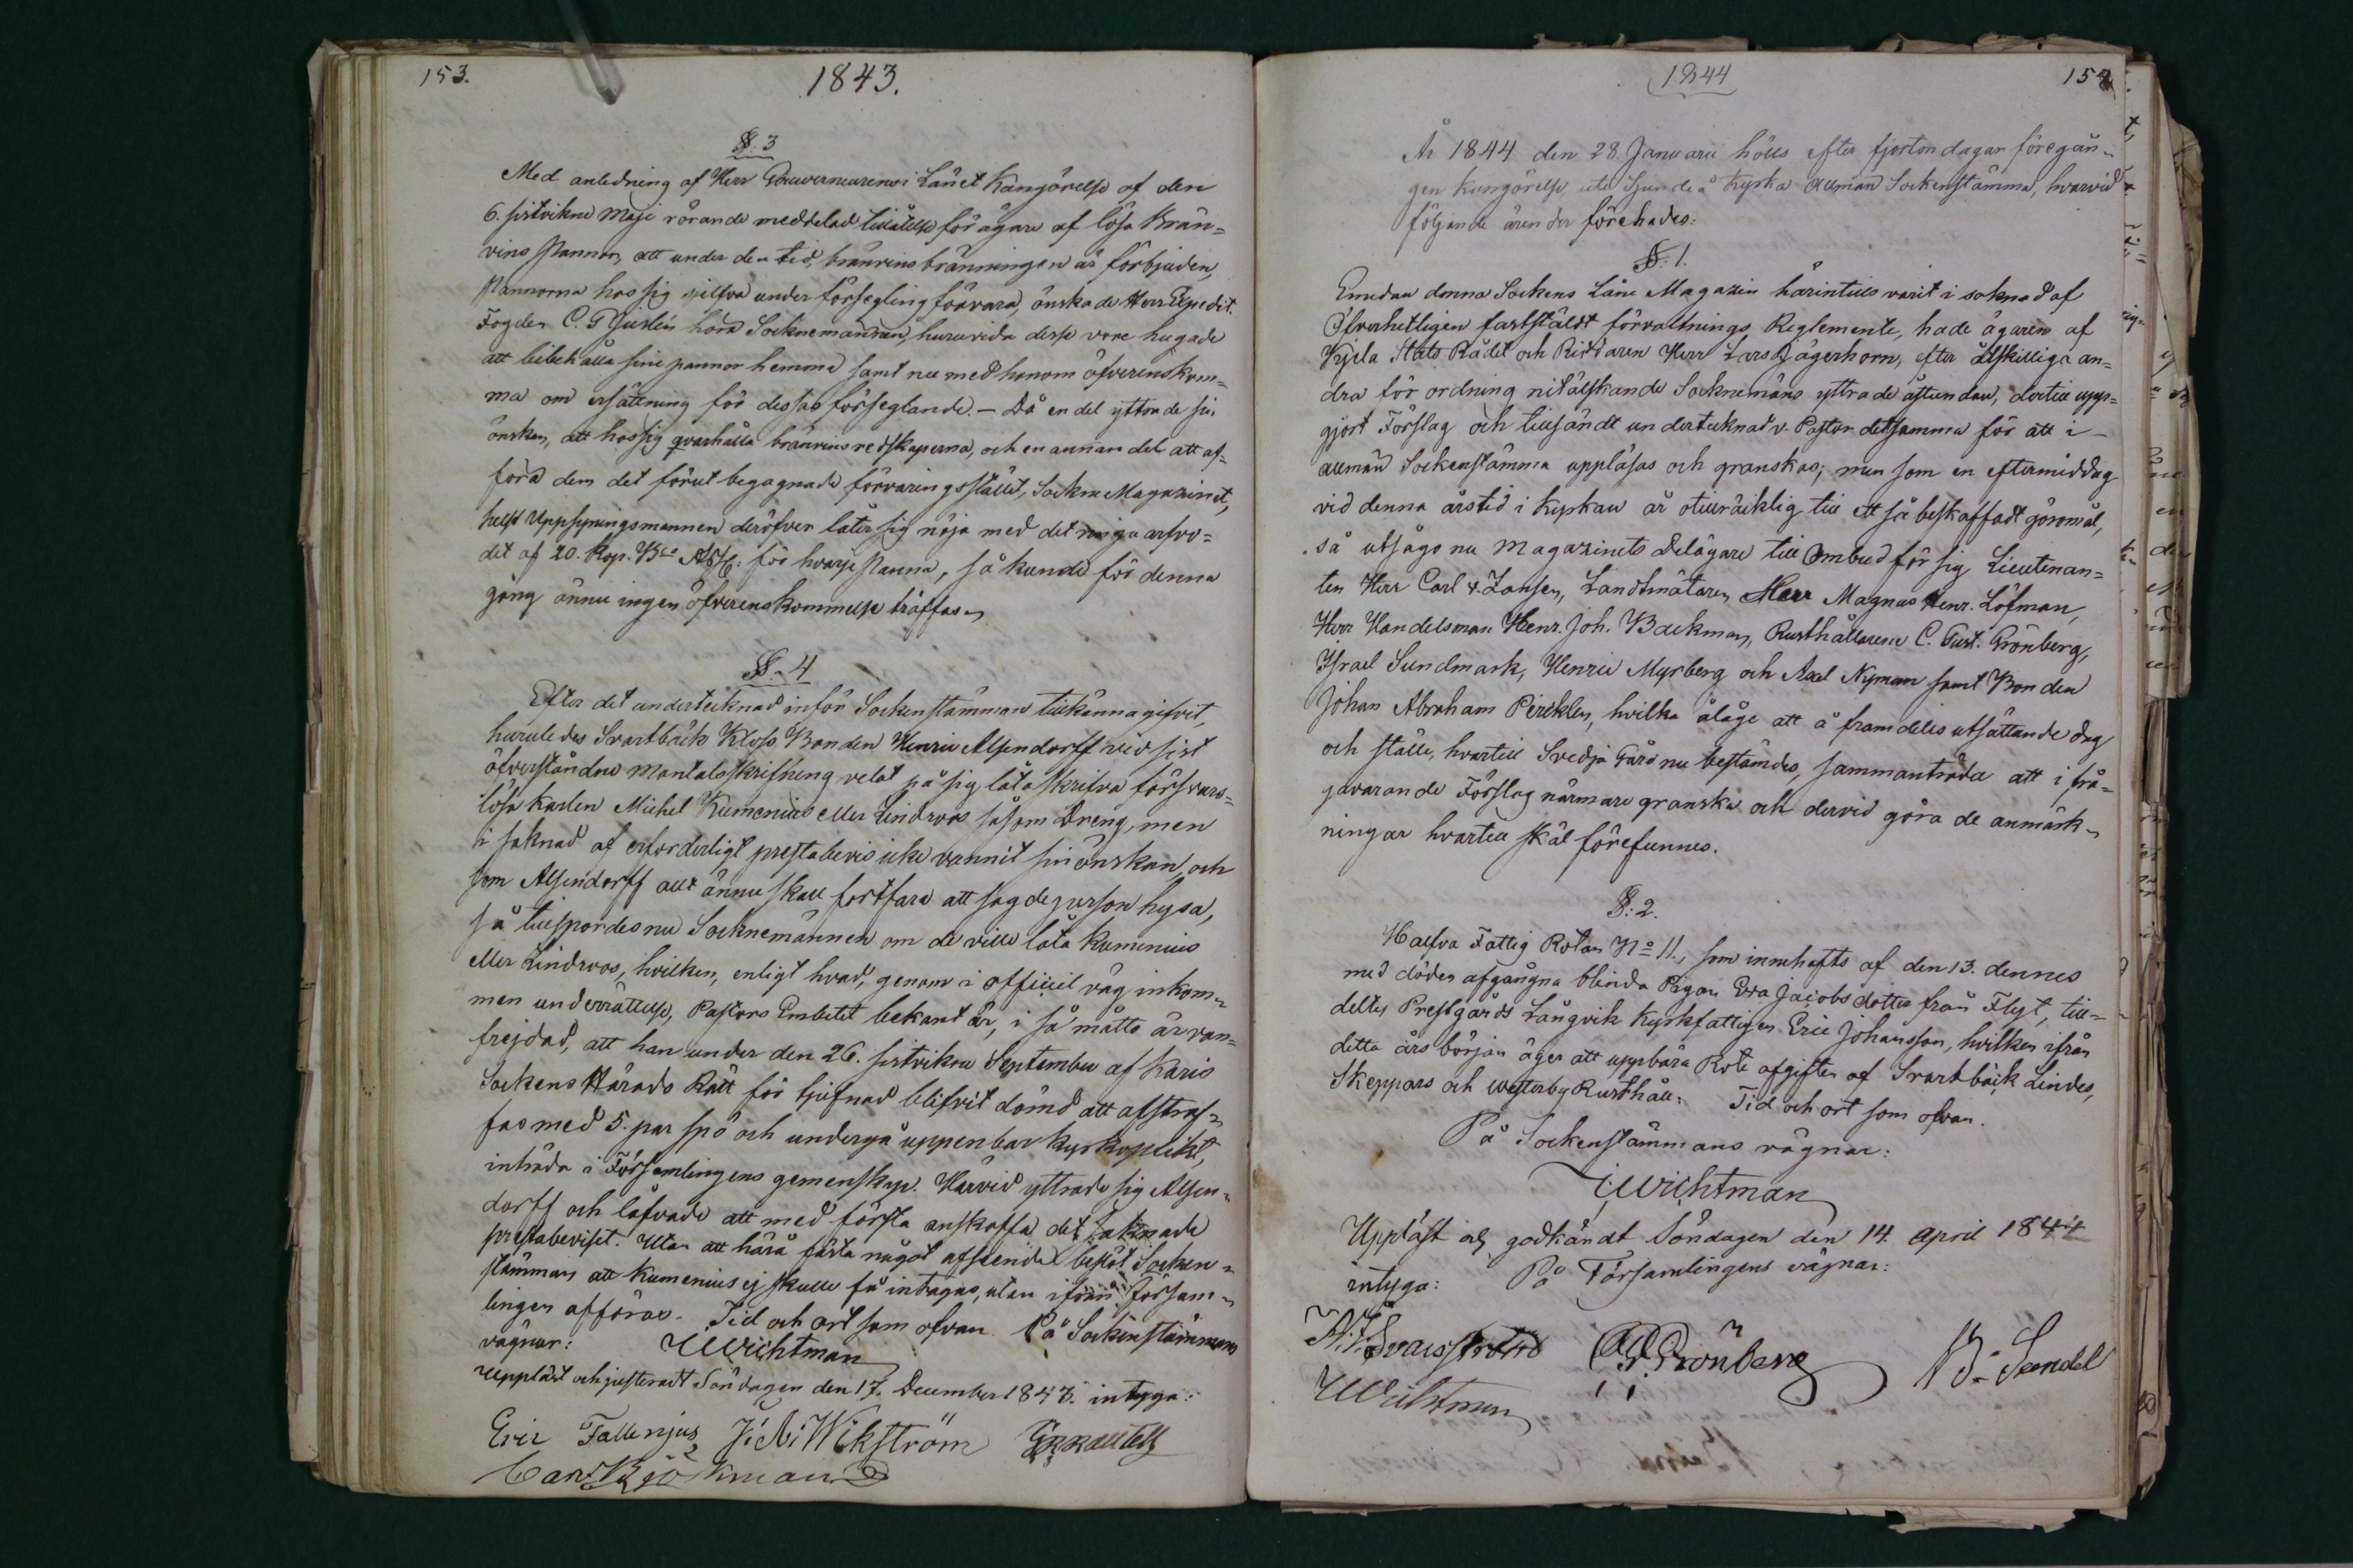 153.
1843.
§. 3
Med anledning af Herr Gouverneurens i Länet Kungörelse af den
6. sistvikne Maji rörande meddelad tillåtelse för ägare af lösa Brän=
vins Pannor, att under den tid, bränvins bränningen är förbjuden,
Pannorna hos sig sjelfva under försegling förvara, önskade Herr Expedit.
Fogden C. G höra Socknemännen, huruvida desse vore hugade
att bibehålla sine pannor hemma samt nu med honom öfverenskom=
ma om ersättning för dessas förseglande. – Då en del yttrade sin
önskan, att hos sig qvarhålla bränvinsredskaperna, och en annan del att af=
föra dem det förut begagnade förvaringsstället, Sockne Magazinet,
helst Uppsyningsmannen deröfver låter sig nöja med det ringa arfvo=
det af 20. Kop. Bco Ass: för hvarje Panna, så kunde för denna
gång ännu ingen öfverenskommelse träffas.
§. 4
Efter det undertecknad inför Sockenstämman tillkännagifvit,
huruledes Svartbäck Kloss Bonden Henric Alsendorff vid sist
öfverståndne Mantalsskrifning velat på sig låta skrifva försvars=
lösa Karlen Michel Kumenius eller Lindroos såsom Dreng, men
i saknad af erforderligt prestabevis icke vunnit sin önskan, och
som Alsendorff allt ännu skall fortfara att sagde person hysa,
så tillspordes nu Socknemännen om de ville låta Kumenius
eller Lindroos, hvilken, enligt hvad, genom i officiel väg inkom=
men underrättelse, Pastors Embetet bekant är, i så måtto är van=
frejdad, att han under den 26. sistvikne September af Karis
Sockens Härads Rätt för tjufnad blifvit dömd att afstraf=
fas med 5. par spö och undergå uppenbar kyrkoplikt,
inträda i Församlingens gemenskap. Härvid yttrade sig Alsen=
dorff och låfvade att med första anskaffa det saknade
prestabeviset. Utan att härå fästa något afseende beslöt Socken=
stämman att Kumenius ej skulle få intagas, utan ifrån Försam=
lingen afföras. Tid och ort som ofvan. På Sockenstämmans
vägnar: Wichtman
Uppläst och justeradt Söndagen den 17. December 1843. intyga:
Eric Fallenius J: N: Wikström
Carl Björkman
1844
154
År 1844 den 28 Januarii hölls efter fjorton dagar föregån=
gen kungörelse uti Sjundeå Kyrka allmän Sockenstämma, hvarvid
följande ärender förehades:
§. 1.
Emedan denna Sockens Låne Magazin härintills varit i saknad af
Öfverhetligen fastställdt förvaltnings Reglemente, hade ägaren af
Kyrla Stats Rådet och Riddaren Herr Lars Jägerhorn, efter åtskilliga an=
dra för ordning nitälskande Socknemäns yttrade åstundan, dertill upp=
gjort Förslag och tillsändt undertecknad v. Pastor detsamma för att i
allmän Sockenstämma uppläsas och granskas; men som en eftermiddag
vid denna årstid i Kyrkan är otillräcklig till ett så beskaffadt göromål,
så utsågo nu Magazinets Delägare till Ombud för sig Lieutenan=
ten Herr Carl v. Zansen, Landtmätaren Herr Magnus Henr. Löfman,
Herr Handelsman Henr. Joh. Backman, Rusthållarene C. Gust. Grönberg,
Israel Sundmark, Henric Myrberg och Axel Nyman samt Bonden
Johan Abraham Pericklen, hvilka ålåge att å framdeles utsättande dag
och ställe, hvartill Svedja Gård nu bestämdes, sammanträda att i frå=
gavarande Förslag närmare granska och dervid göra de anmärk=
ningar hvartill skäl förefunnes.
§. 2.
Halfva Fattig Rotan No 11., som innehafts af den 13. dennes
med döden afgångna blinda Pigan Eva Jacobsdotter från Flyt, till=
deltes Prestgårds Långvik Kyrkfattigen Eric Johansson, hvilken ifrån
detta års början äger att uppbära Rote afgiften af Svartbäck Lindes,
Skeppars och Westerby Rusthåll. Tid och ort som ofvan.
På Sockenstämmans vägnar:
Wichtman
Uppläst och godkändt Söndagen den 14. April 1844
intyga: På Församlingens vägnar:
C G Grönberg B. Sandel
Wichtman